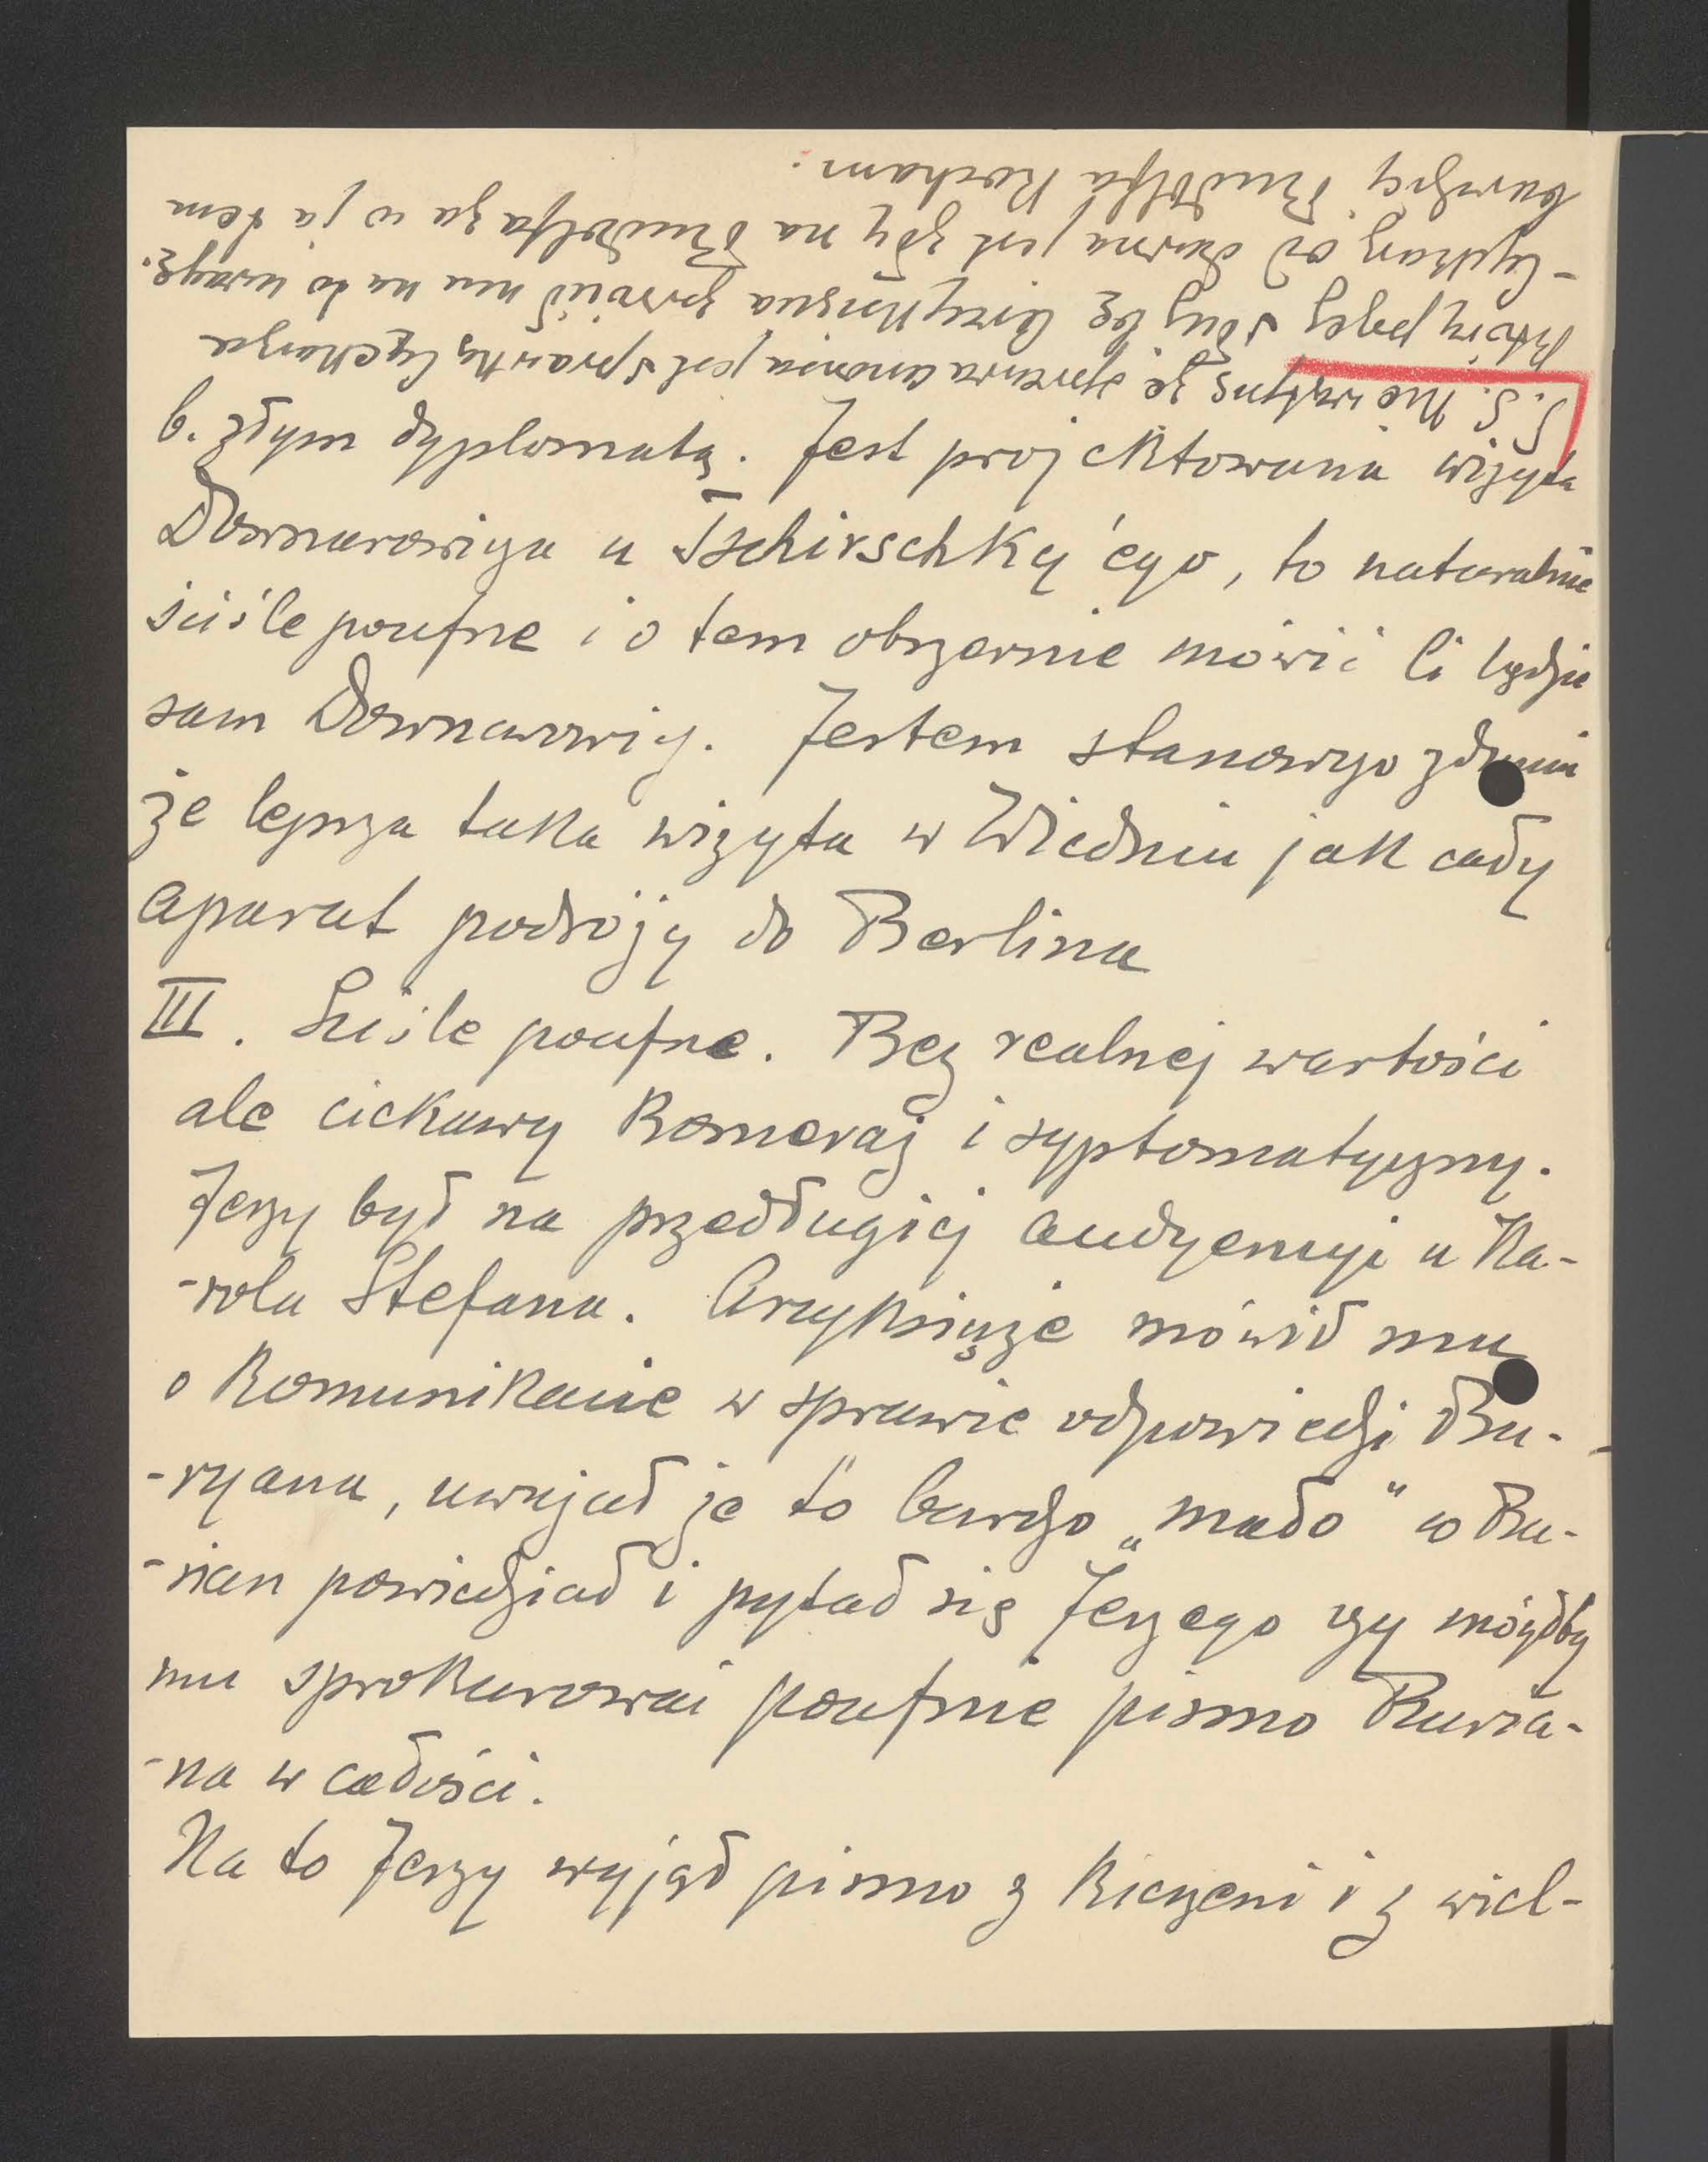 b. złym dyplomatą. Jest projektowana wizyta
Downarowicza u Tschirschky'ego, to naturalnie
ściśle poufne i o tem obszernie mówić Ci będzie
sam Downarowicz. Jestem stanowczo zdania
że lepsza taka wizyta w Wiedniu jak cały
aparat podróży do Berlina
III. Ściśle poufne. Bez realnej wartości
ale ciekawy komeraż i syptomatyczny.
Jerzy był na przedługiej audyencyi u Ka-
-rola Stefana. Arcyksiąże mówił mu
o komunikacie w sprawie odpowiedzi Bu-
-ryana, uważał że to bardzo „mało" co Bu-
-rian powiedział i pytał się Jerzego czy mógłby
mu sprokurować poufnie pismo Buria-
-na w całości.
Na to Jerzy wyjął pismo z kieszeni i z wiel-
P.S. Nie wątpię że sprawa jest sprawką Cyckarza
który pełzł służbę Arcyksięcia zwrócił mu na to uwagę.
od dawna jest zły na Rudolfa za co ja tem
bardziej Rudolfa kocham.